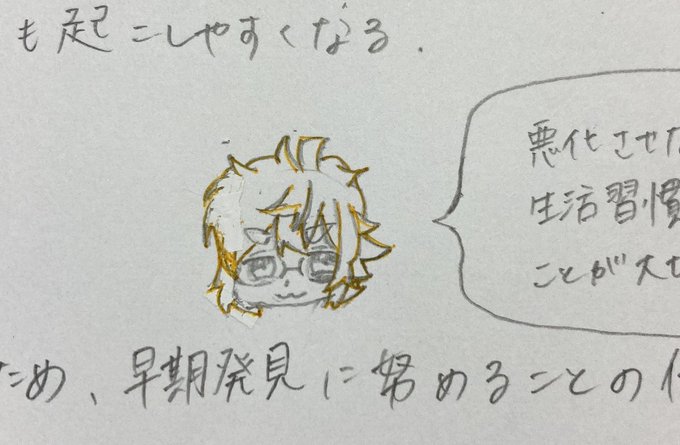 も起こしやすくなる.
悪化させな
生活習慣
ことが大切
ため、早期発見に努めることの